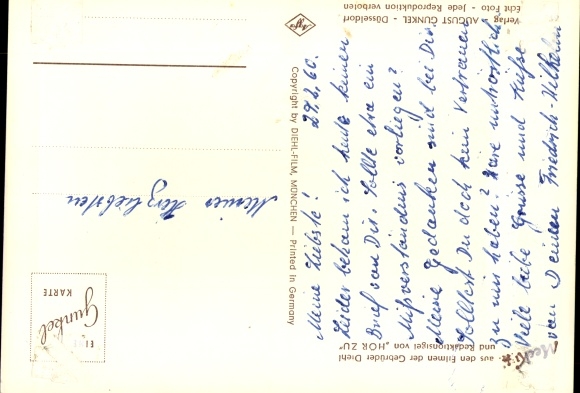 Verlag AUGUST GUNKEL - Düsseldorf
Echt Foto - Jede Reproduktion verboten
Agfa
Copyright by DIEHL-FILM, MÜNCHEN — Printed in Germany
29.2.60.
Meine Liebste!
Leider bekam ich heute keinen
Brief von Dir. Sollte etwa ein
Mißverständnis vorliegen?
Meine Gedanken sind bei Dir.
Solltest Du doch kein Vertrauen
zu mir haben? Wäre untröstlich
Viele liebe Grüsse und Küsse
von Deinem Friedrich-Wilhelm
Mecki
aus den Filmen der Gebrüder Diehl
und Redaktionsigel von „HÖR ZU"
Meiner Herzliebsten
Gunkel
KARTE